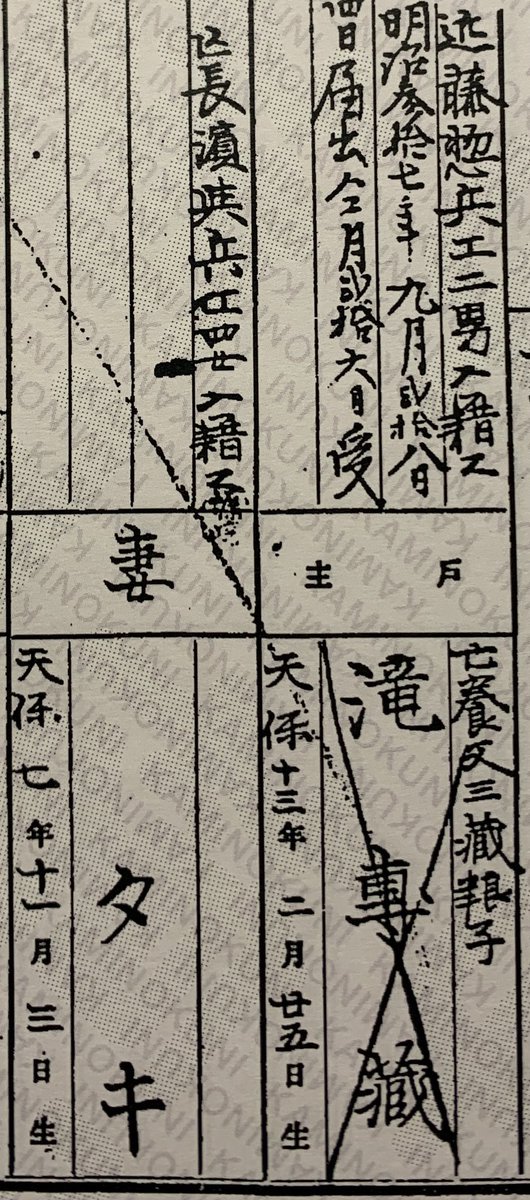 近藤惣兵エ二男入籍ス
明治参拾七年九月弐拾八日
四日届出仝月弐拾六日受
戸主
亡養父三藏子
滝專藏
天保十三年二月廿五日生
長濱兵四女入籍ス
妻
タキ
天保七年十一月三日生
KAMINOKUNI